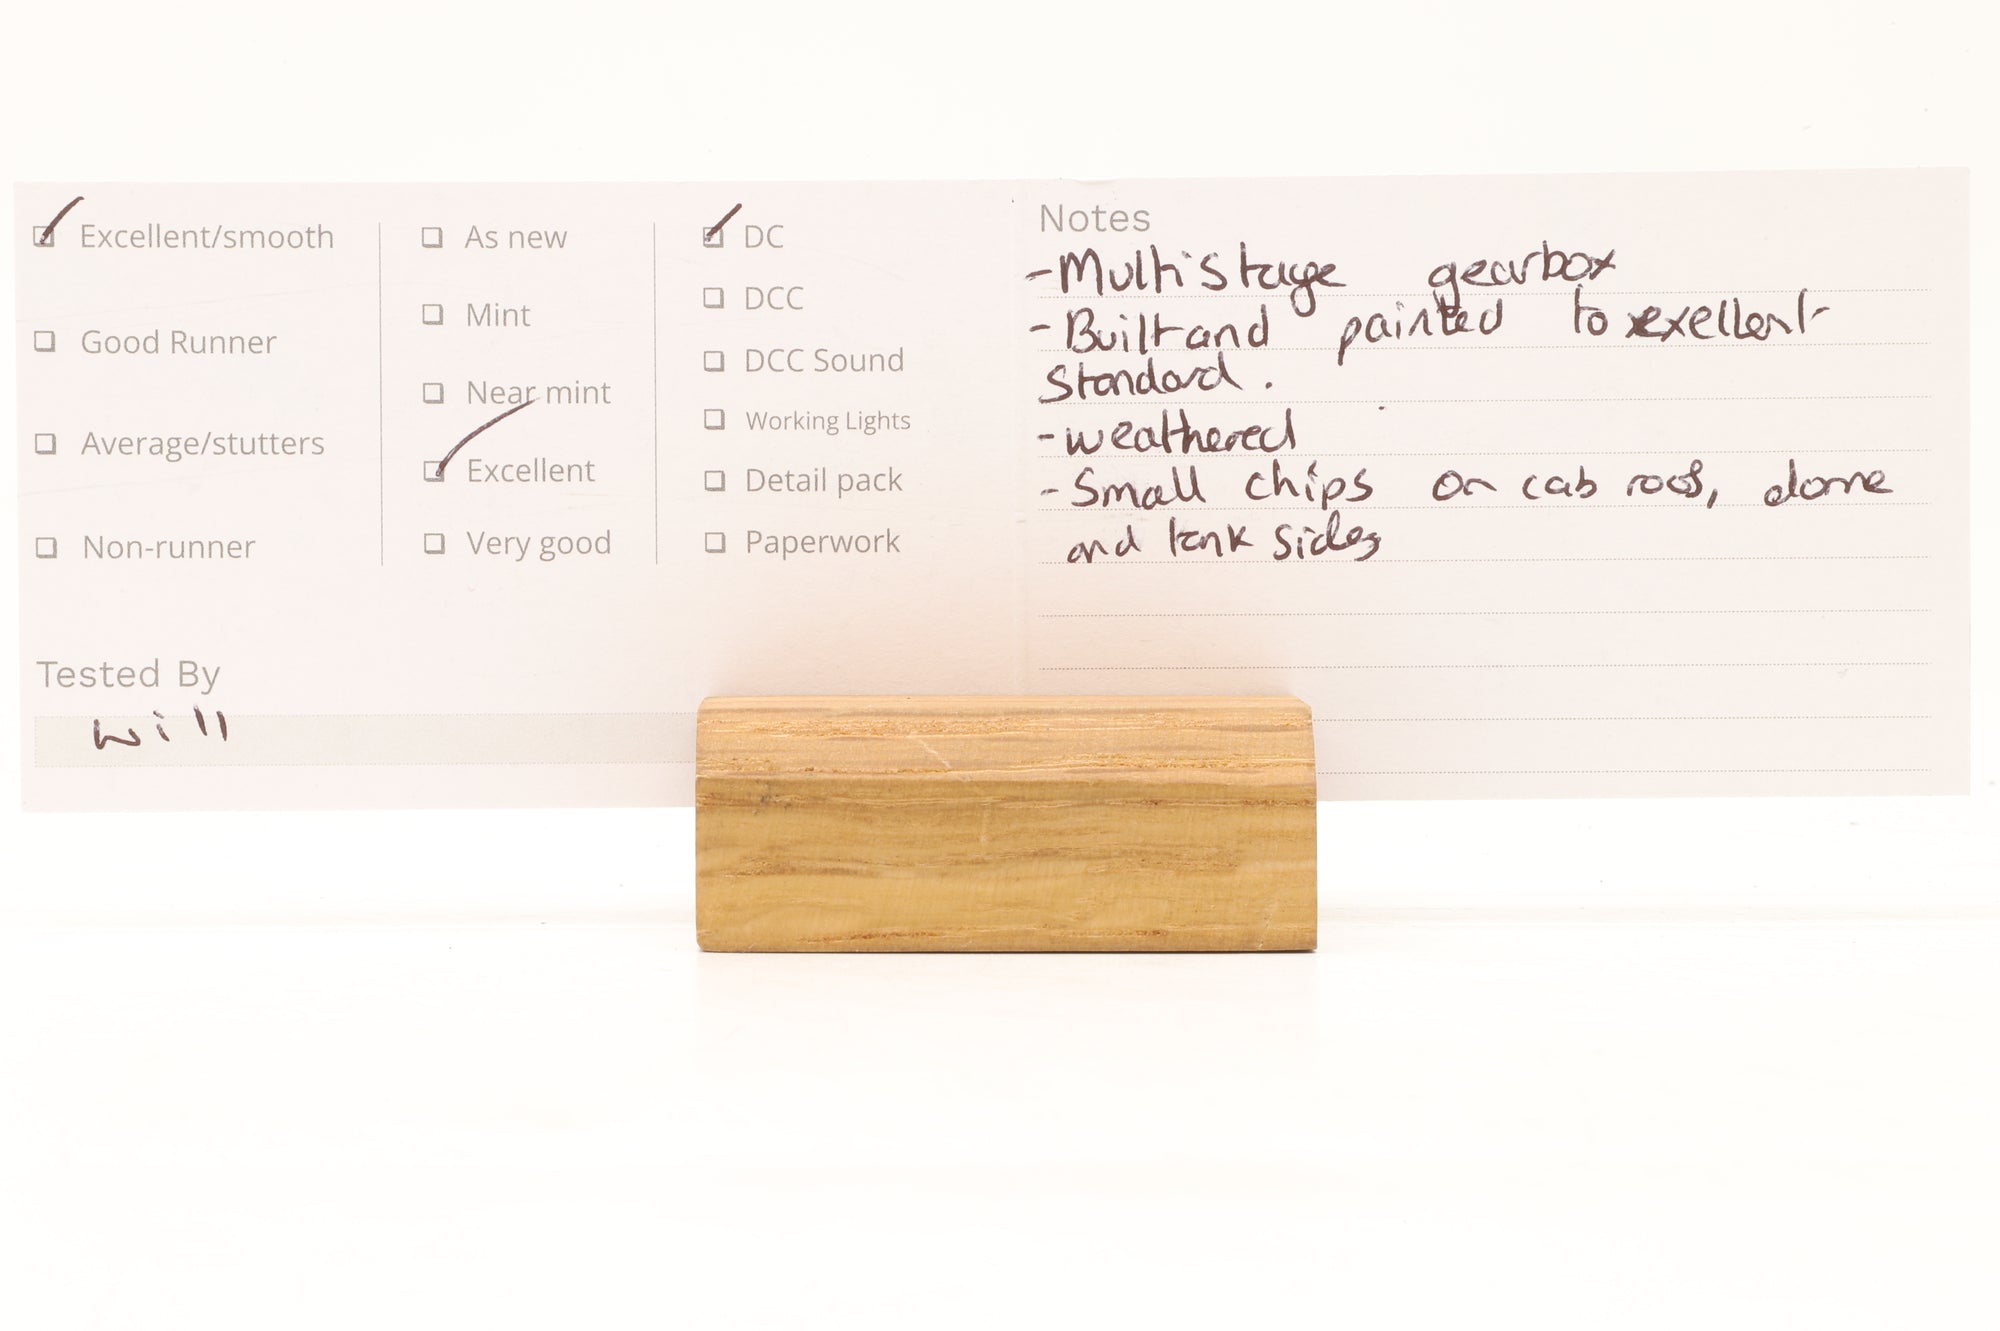 Excellent/smooth
Good Runner
Average/stutters
Non-runner
As new
Mint
Near mint
Excellent
Very good
DC
DCC
DCC Sound
Working Lights
Detail pack
Paperwork
Tested By
Will
Notes
- Multistage gearbox
- Built and painted to exellent
Standard.
- weathered
- Small chips on cab roof, dome
and tank sides